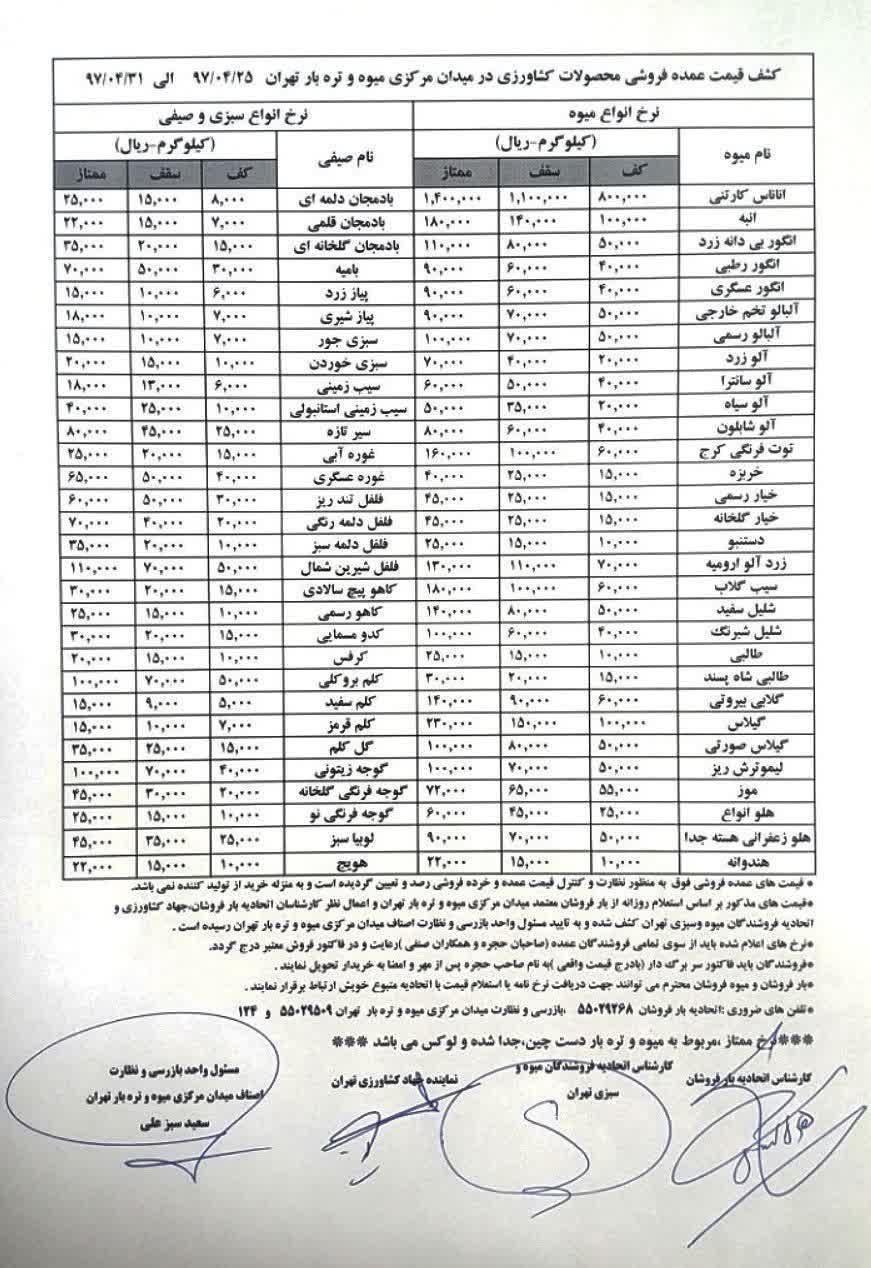 کشف قیمت عمده فروشی محصولات کشاورزی در میدان مرکزی میوه و تره بار تهران ۹۷/۰۴/۲۵ الی ۹۷/۰۴/۳۱
نرخ انواع میوه نرخ انواع سبزی و صیفی
نام میوه (کیلوگرم-ریال) نام صیفی (کیلوگرم-ریال)
کف سقف ممتاز کف سقف ممتاز
آناناس کارتنی ۸۰۰,۰۰۰ ۱,۱۰۰,۰۰۰ ۱,۴۰۰,۰۰۰ بادمجان دلمه ای ۸,۰۰۰ ۱۵,۰۰۰ ۲۵,۰۰۰
انبه ۱۰۰,۰۰۰ ۱۴۰,۰۰۰ ۱۸۰,۰۰۰ بادمجان قلمی ۷,۰۰۰ ۱۵,۰۰۰ ۲۲,۰۰۰
انگور بی دانه زرد ۵۰,۰۰۰ ۸۰,۰۰۰ ۱۱۰,۰۰۰ بادمجان گلخانه ای ۱۵,۰۰۰ ۲۰,۰۰۰ ۳۵,۰۰۰
انگور رطبی ۴۰,۰۰۰ ۶۰,۰۰۰ ۹۰,۰۰۰ بامیه ۳۰,۰۰۰ ۵۰,۰۰۰ ۷۰,۰۰۰
انگور عسگری ۴۰,۰۰۰ ۶۰,۰۰۰ ۹۰,۰۰۰ پیاز زرد ۶,۰۰۰ ۱۰,۰۰۰ ۱۵,۰۰۰
آلبالو تخم خارجی ۵۰,۰۰۰ ۷۰,۰۰۰ ۹۰,۰۰۰ پیاز شیری ۷,۰۰۰ ۱۰,۰۰۰ ۱۸,۰۰۰
آلبالو رسمی ۵۰,۰۰۰ ۷۰,۰۰۰ ۱۰۰,۰۰۰ سبزی جور ۷,۰۰۰ ۱۰,۰۰۰ ۱۵,۰۰۰
آلو زرد ۲۰,۰۰۰ ۴۰,۰۰۰ ۷۰,۰۰۰ سبزی خوردن ۱۰,۰۰۰ ۱۵,۰۰۰ ۲۰,۰۰۰
آلو سانترا ۴۰,۰۰۰ ۵۰,۰۰۰ ۶۰,۰۰۰ سیب زمینی ۶,۰۰۰ ۱۳,۰۰۰ ۱۸,۰۰۰
آلو سیاه ۲۰,۰۰۰ ۳۵,۰۰۰ ۵۰,۰۰۰ سیب زمینی استانبولی ۱۰,۰۰۰ ۲۵,۰۰۰ ۴۰,۰۰۰
آلو شابلون ۴۰,۰۰۰ ۶۰,۰۰۰ ۸۰,۰۰۰ سیر تازه ۲۵,۰۰۰ ۴۵,۰۰۰ ۸۰,۰۰۰
توت فرنگی کرج ۶۰,۰۰۰ ۱۰۰,۰۰۰ ۱۶۰,۰۰۰ غوره آبی ۱۵,۰۰۰ ۲۰,۰۰۰ ۲۵,۰۰۰
خربزه ۱۵,۰۰۰ ۲۵,۰۰۰ ۴۰,۰۰۰ غوره عسگری ۴۰,۰۰۰ ۵۰,۰۰۰ ۶۵,۰۰۰
خیار رسمی ۱۵,۰۰۰ ۲۵,۰۰۰ ۴۵,۰۰۰ فلفل تند ریز ۳۰,۰۰۰ ۵۰,۰۰۰ ۶۰,۰۰۰
خیار گلخانه ۱۵,۰۰۰ ۲۵,۰۰۰ ۴۵,۰۰۰ فلفل دلمه رنگی ۲۰,۰۰۰ ۴۰,۰۰۰ ۷۰,۰۰۰
دستنبو ۱۰,۰۰۰ ۱۵,۰۰۰ ۲۵,۰۰۰ فلفل دلمه سبز ۱۰,۰۰۰ ۲۰,۰۰۰ ۳۵,۰۰۰
زرد آلو ارومیه ۷۰,۰۰۰ ۱۱۰,۰۰۰ ۱۳۰,۰۰۰ فلفل شیرین شمال ۵۰,۰۰۰ ۷۰,۰۰۰ ۱۱۰,۰۰۰
سیب گلاب ۶۰,۰۰۰ ۱۰۰,۰۰۰ ۱۸۰,۰۰۰ کاهو پیچ سالادی ۱۵,۰۰۰ ۲۰,۰۰۰ ۳۰,۰۰۰
شلیل سفید ۵۰,۰۰۰ ۸۰,۰۰۰ ۱۴۰,۰۰۰ کاهو رسمی ۱۰,۰۰۰ ۱۵,۰۰۰ ۲۵,۰۰۰
شلیل شبرنگ ۴۰,۰۰۰ ۶۰,۰۰۰ ۱۰۰,۰۰۰ کدو مسمایی ۱۵,۰۰۰ ۲۰,۰۰۰ ۳۰,۰۰۰
طالبی ۱۰,۰۰۰ ۱۵,۰۰۰ ۲۵,۰۰۰ کرفس ۱۰,۰۰۰ ۱۵,۰۰۰ ۲۰,۰۰۰
طالبی شاه پسند ۱۵,۰۰۰ ۲۰,۰۰۰ ۳۰,۰۰۰ کلم بروکلی ۵۰,۰۰۰ ۷۰,۰۰۰ ۱۰۰,۰۰۰
گلابی بیروتی ۶۰,۰۰۰ ۹۰,۰۰۰ ۱۴۰,۰۰۰ کلم سفید ۵,۰۰۰ ۹,۰۰۰ ۱۵,۰۰۰
گیلاس ۱۰۰,۰۰۰ ۱۵۰,۰۰۰ ۲۳۰,۰۰۰ کلم قرمز ۷,۰۰۰ ۱۰,۰۰۰ ۱۵,۰۰۰
گیلاس صورتی ۵۰,۰۰۰ ۸۰,۰۰۰ ۱۰۰,۰۰۰ گل کلم ۱۵,۰۰۰ ۲۵,۰۰۰ ۳۵,۰۰۰
لیموترش ریز ۵۰,۰۰۰ ۷۰,۰۰۰ ۱۰۰,۰۰۰ گوجه زیتونی ۴۰,۰۰۰ ۷۰,۰۰۰ ۱۰۰,۰۰۰
موز ۵۵,۰۰۰ ۶۵,۰۰۰ ۷۲,۰۰۰ گوجه فرنگی گلخانه ۲۰,۰۰۰ ۳۰,۰۰۰ ۴۵,۰۰۰
هلو انواع ۲۵,۰۰۰ ۴۵,۰۰۰ ۶۰,۰۰۰ گوجه فرنگی نو ۱۰,۰۰۰ ۱۵,۰۰۰ ۲۵,۰۰۰
هلو زعفرانی هسته جدا ۵۰,۰۰۰ ۷۰,۰۰۰ ۹۰,۰۰۰ لوبیا سبز ۲۵,۰۰۰ ۳۵,۰۰۰ ۴۵,۰۰۰
هندوانه ۱۰,۰۰۰ ۱۵,۰۰۰ ۲۲,۰۰۰ هویج ۱۰,۰۰۰ ۱۵,۰۰۰ ۲۲,۰۰۰
* قیمت های عمده فروشی فوق به منظور نظارت و کنترل قیمت عمده و خرده فروشی رصد و تعیین گردیده است و به منزله خرید از تولید کننده نمی باشد.
*قیمت های مذکور بر اساس استعلام روزانه از بار فروشان معتمد میدان مرکزی میوه و تره بار تهران و اعمال نظر کارشناسان اتحادیه بار فروشان،جهاد کشاورزی و
اتحادیه فروشندگان میوه وسبزی تهران کشف شده و به تایید مسئول واحد بازرسی و نظارت اصناف میدان مرکزی میوه و تره بار تهران رسیده است .
*نرخ های اعلام شده باید از سوی تمامی فروشندگان عمده (صاحبان حجره و همکاران صنفی )رعایت و در فاکتور فروش معتبر درج گردد.
*فروشندگان باید فاکتور سر برگ دار (بادرج قیمت واقعی )به نام صاحب حجره پس از مهر و امضا به خریدار تحویل نمایند .
*بار فروشان و میوه فروشان محترم می توانند جهت دریافت نرخ نامه یا استعلام قیمت با اتحادیه متبوع خویش ارتباط برقرار نمایند .
*تلفن های ضروری :اتحادیه بار فروشان ۵۵۰۲۹۲۶۸ ،بازرسی و نظارت میدان مرکزی میوه و تره بار تهران ۵۵۰۲۹۵۰۹ و ۱۲۴
***نرخ ممتاز ،مربوط به میوه و تره بار دست چین،جدا شده و لوکس می باشد ***
کارشناس اتحادیه بار فروشان
کارشناس اتحادیه فروشندگان میوه و
سبزی تهران
نماینده جهاد کشاورزی تهران
مسئول واحد بازرسی و نظارت
اصناف میدان مرکزی میوه و تره بار تهران
سعید سبز علی